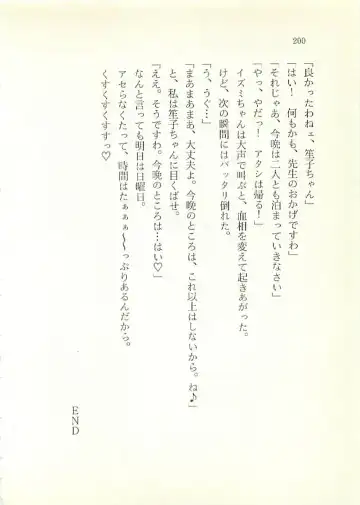 200
「良かったわねェ、笙子ちゃん」
「はい! 何もかも、先生のおかげですわ」
「それじゃあ、今晩は二人とも泊まっていきなさい」
「やっ、やだっ! アタシは帰る!」
イズミちゃんは大声で叫ぶと、血相を変えて起きあがった。
けど、次の瞬間にはバッタリ倒れた。
「う、うぐ…」
「まあまあまぁ、大丈夫よ。今晩のところは、これ以上はしないから。ね♪」
と、私は笙子ちゃんに目くばせ。
「ええ。そうですわ。今晩のところは…はい♡」
なんと言っても明日は日曜日。
アセらなくたって、時間はたぁぁぁ〜〜っぷりあるんだから。
くすくすくすすっ♡
END